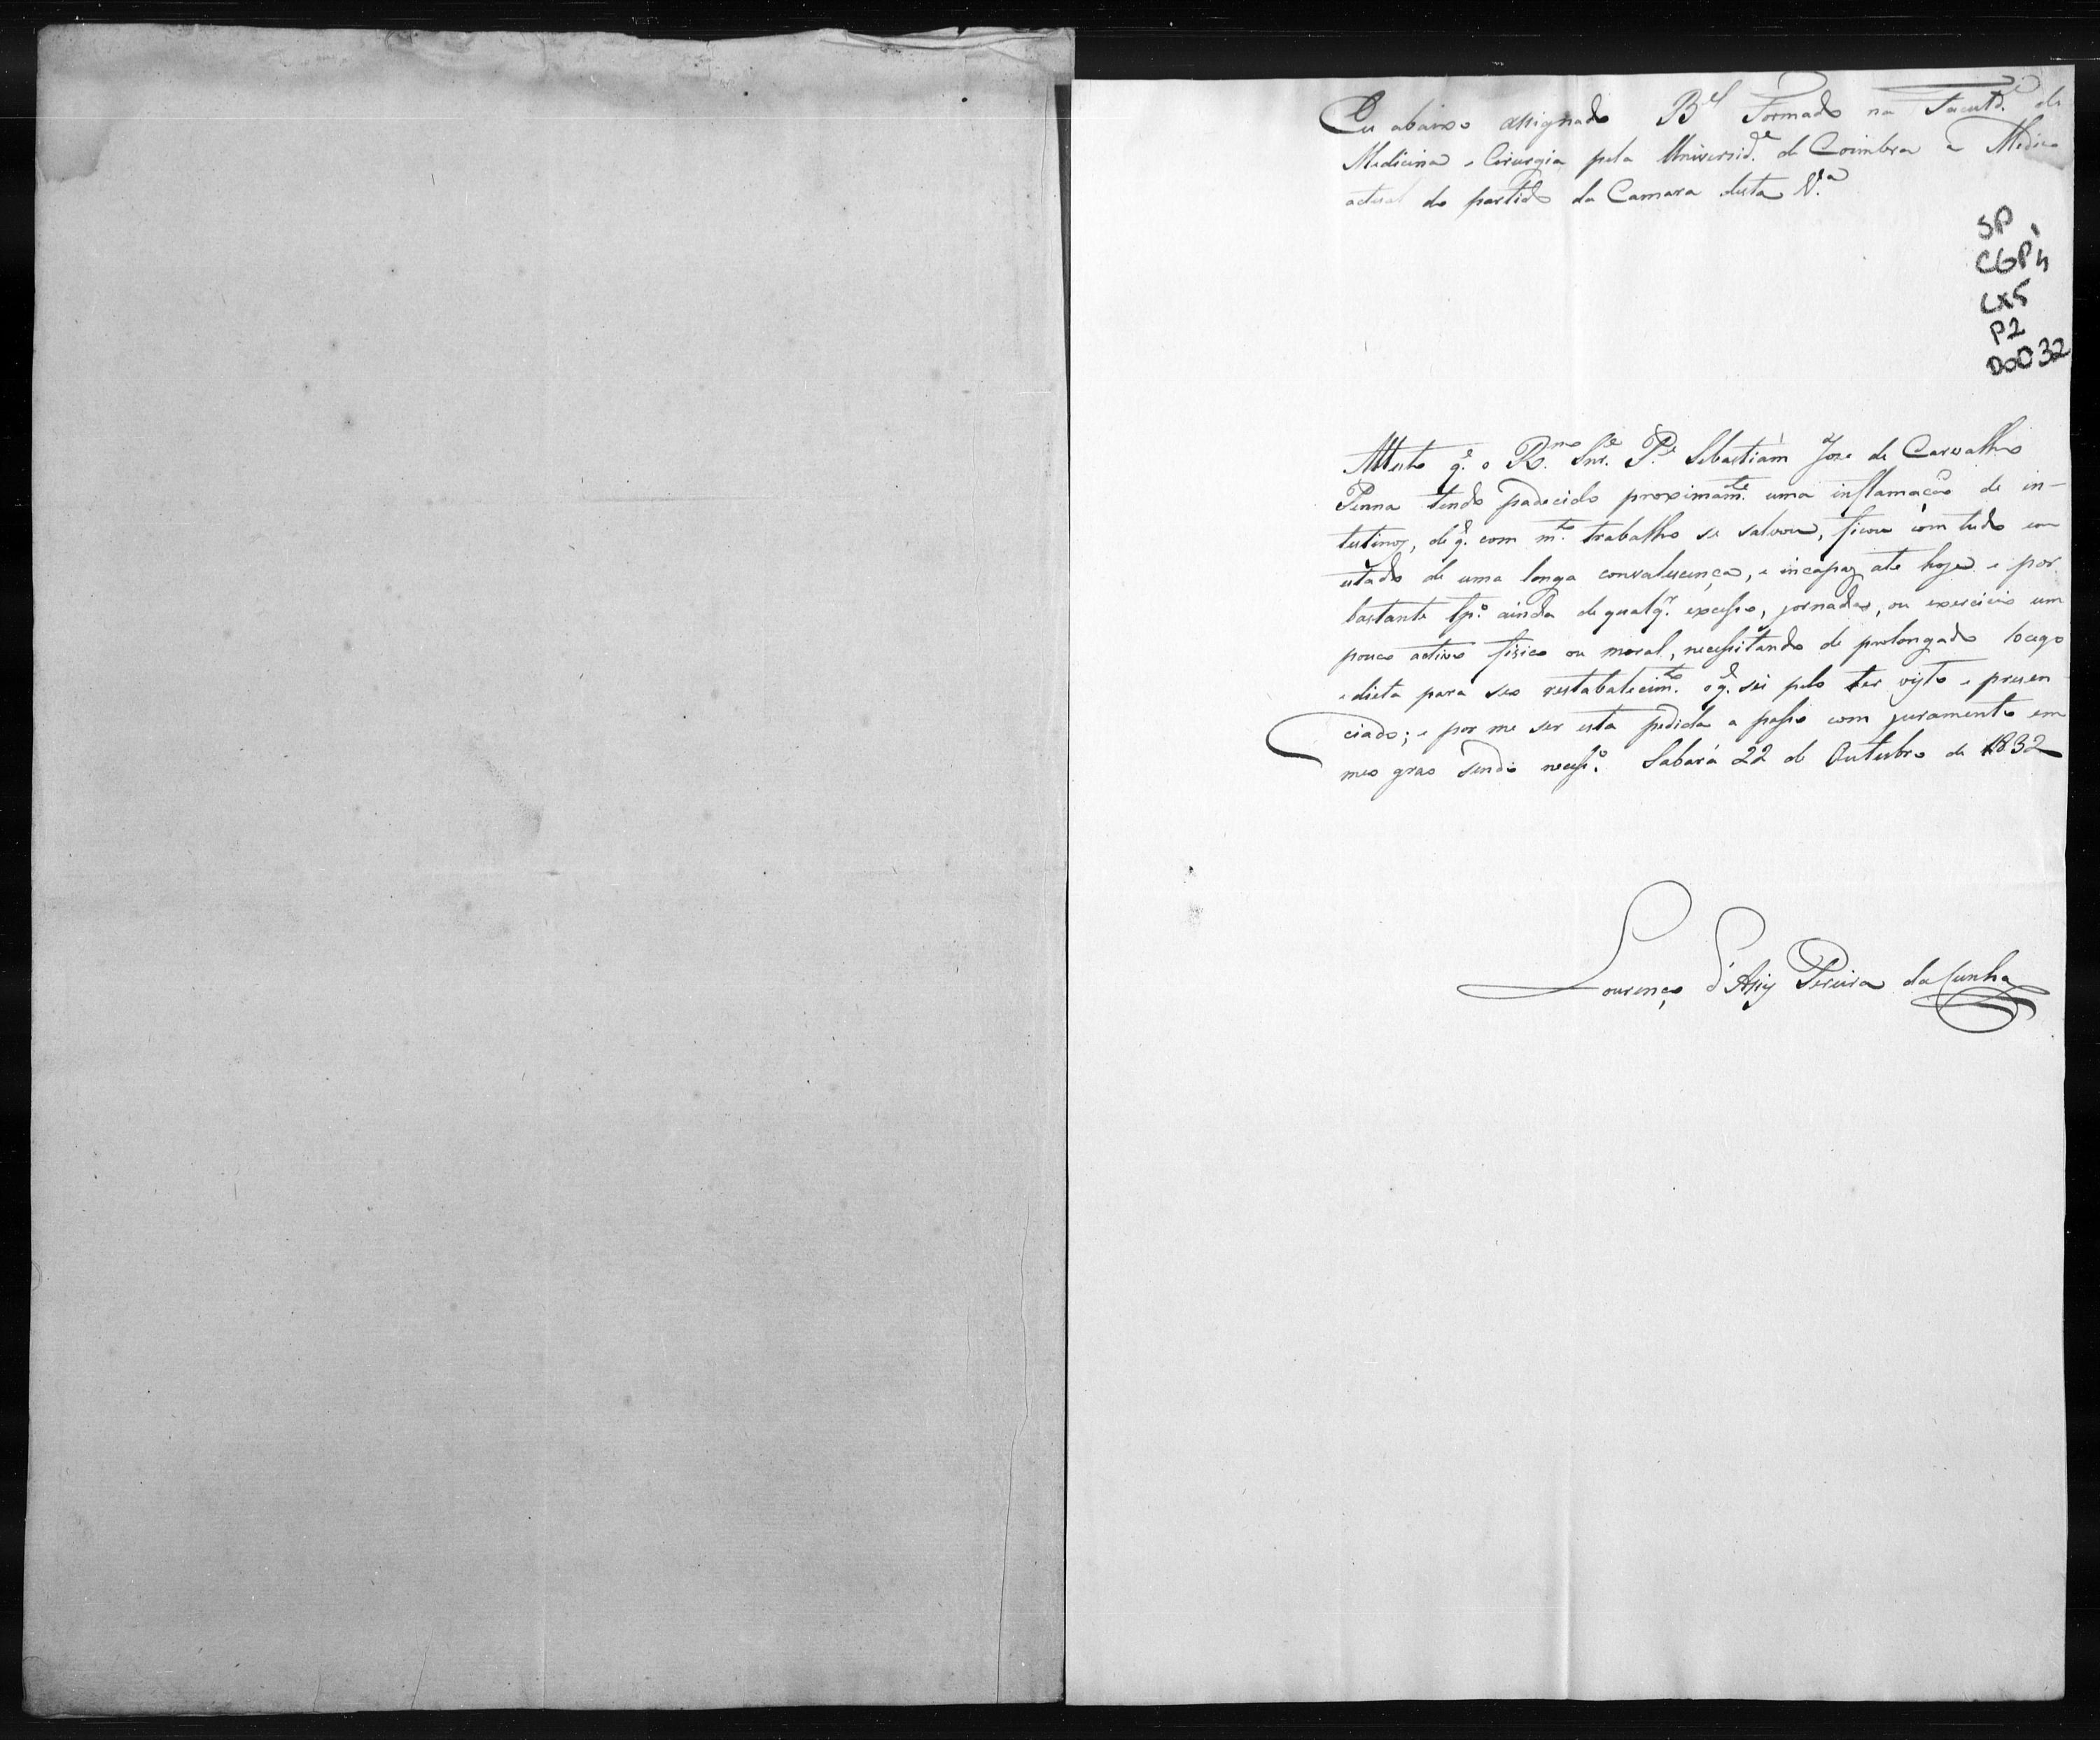 Eu abaixo assignado B.el Formado na Faculd.e de
Medicina e Cirurgia pela Universid.e de Coimbra e Medico
actual do partido da Camara desta V.a
SP
CGP4
CX5
P2
DOC32
Attesto q.e o R.mo Snr. P.e Sebastiam Joze de Carvalho
Penna tendo padecido proximam.te uma inflamação de in-
testinos, de q. com m.to trabalho se salvou, ficou com tudo em
estado de uma longa convalescença, e incapaz ate hoje e por
bastante tp.o ainda de qualq.r excesso, jornadas, ou exercicio um
pouco activo fisico ou moral, necessitando de prolongado socego
e dieta para seo restabalecim.to o q. sei pelo ter visto e presen
ciado; e por me ser esta pedida a passo com juramento em
meo grao sendo necess.o Sabará 22 de Outubro de 1832
Lourenço d'Assiz Pereira da Cunha